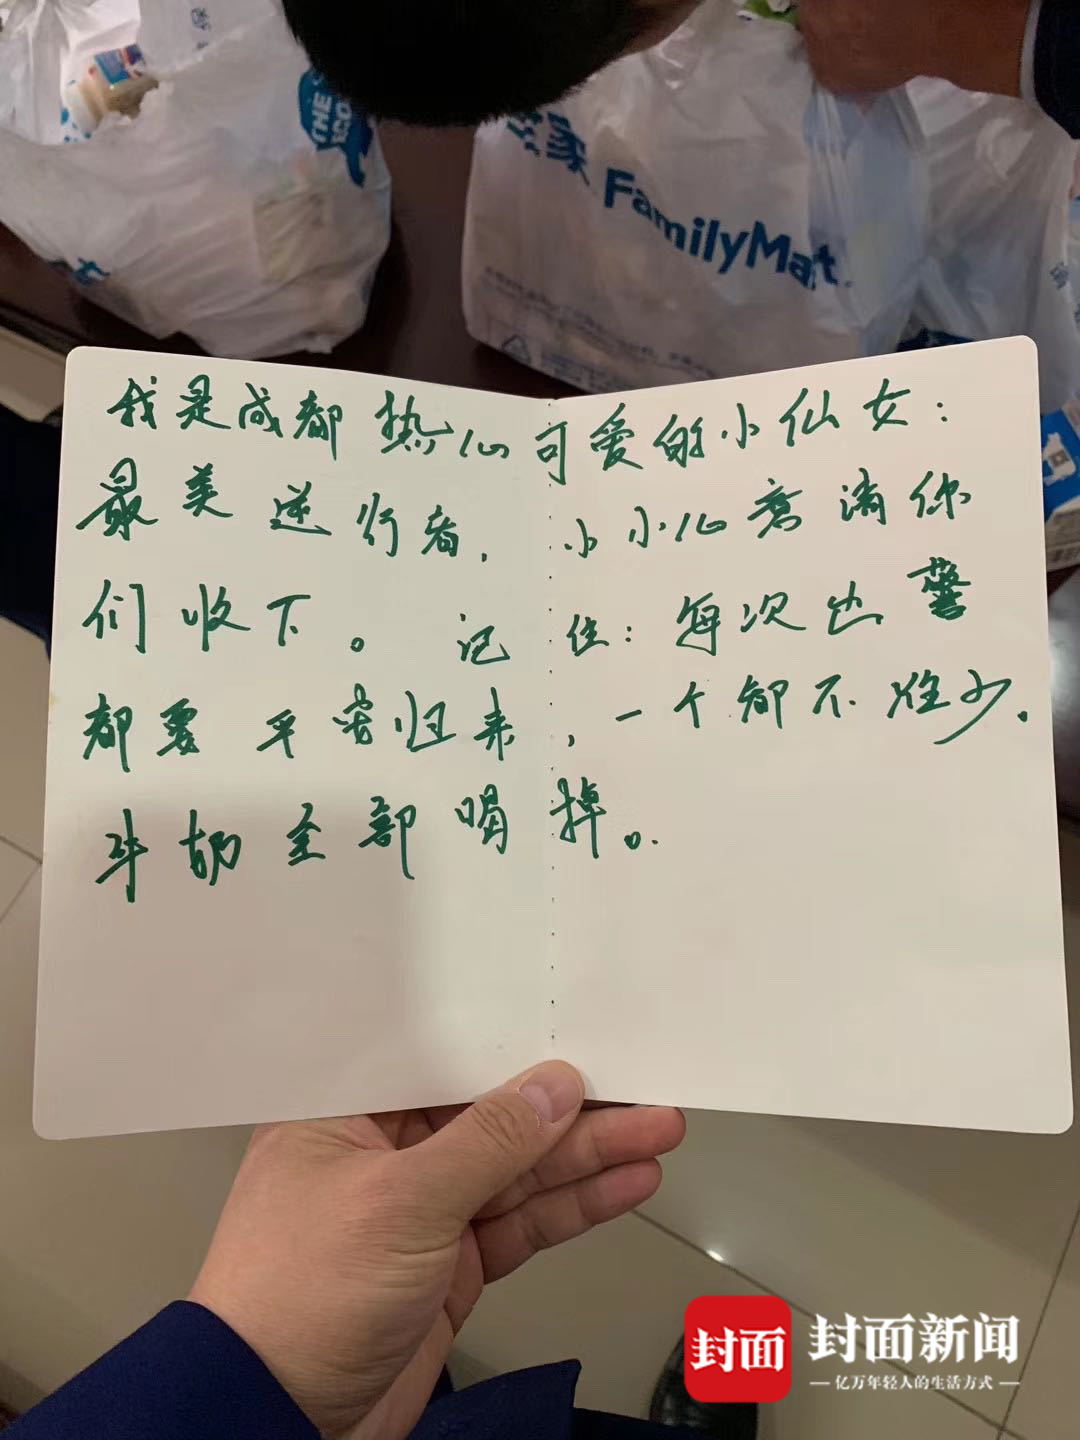 THE
全家 FamilyMart
我是成都热心可爱的小仙女：
最美逆行者，小小心意请你
们收下。记住：每次出警
都要平安归来，一个都不准少。
牛奶全部喝掉。
封面
封面新闻
亿万年轻人的生活方式